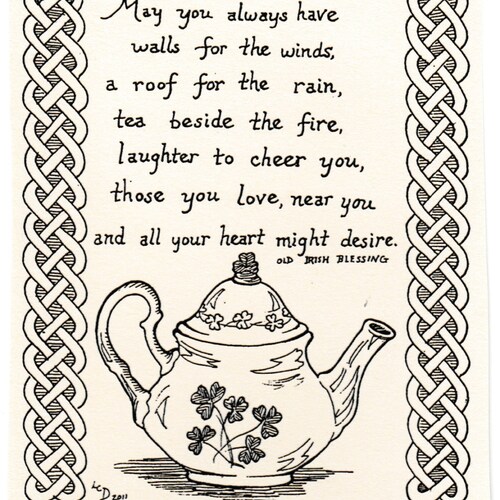 May you always have
walls for the winds,
a roof for the rain,
tea beside the fire,
laughter to cheer you,
those you love, near you
and all your heart might desire.
OLD IRISH BLESSING
LCD 2011